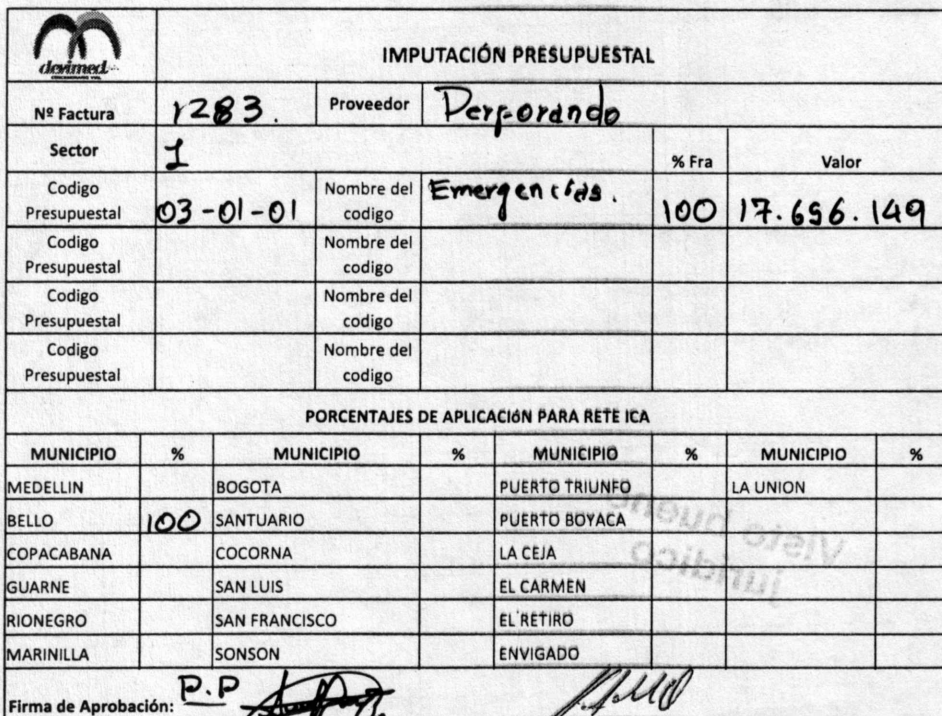 devimed
IMPUTACIÓN PRESUPUESTAL
Nº Factura 1283. Proveedor Perforando
Sector I % Fra Valor
Codigo Presupuestal 03-01-01 Nombre del codigo Emergencias. 100 17.656.149
Codigo Presupuestal Nombre del codigo
Codigo Presupuestal Nombre del codigo
Codigo Presupuestal Nombre del codigo
PORCENTAJES DE APLICACIÓN PARA RETE ICA
MUNICIPIO % MUNICIPIO % MUNICIPIO % MUNICIPIO %
MEDELLIN BOGOTA PUERTO TRIUNFO LA UNION
BELLO 100 SANTUARIO PUERTO BOYACA
COPACABANA COCORNA LA CEJA
GUARNE SAN LUIS EL CARMEN
RIONEGRO SAN FRANCISCO EL RETIRO
MARINILLA SONSON ENVIGADO
Visto bueno
juridico
Firma de Aprobación: P.P